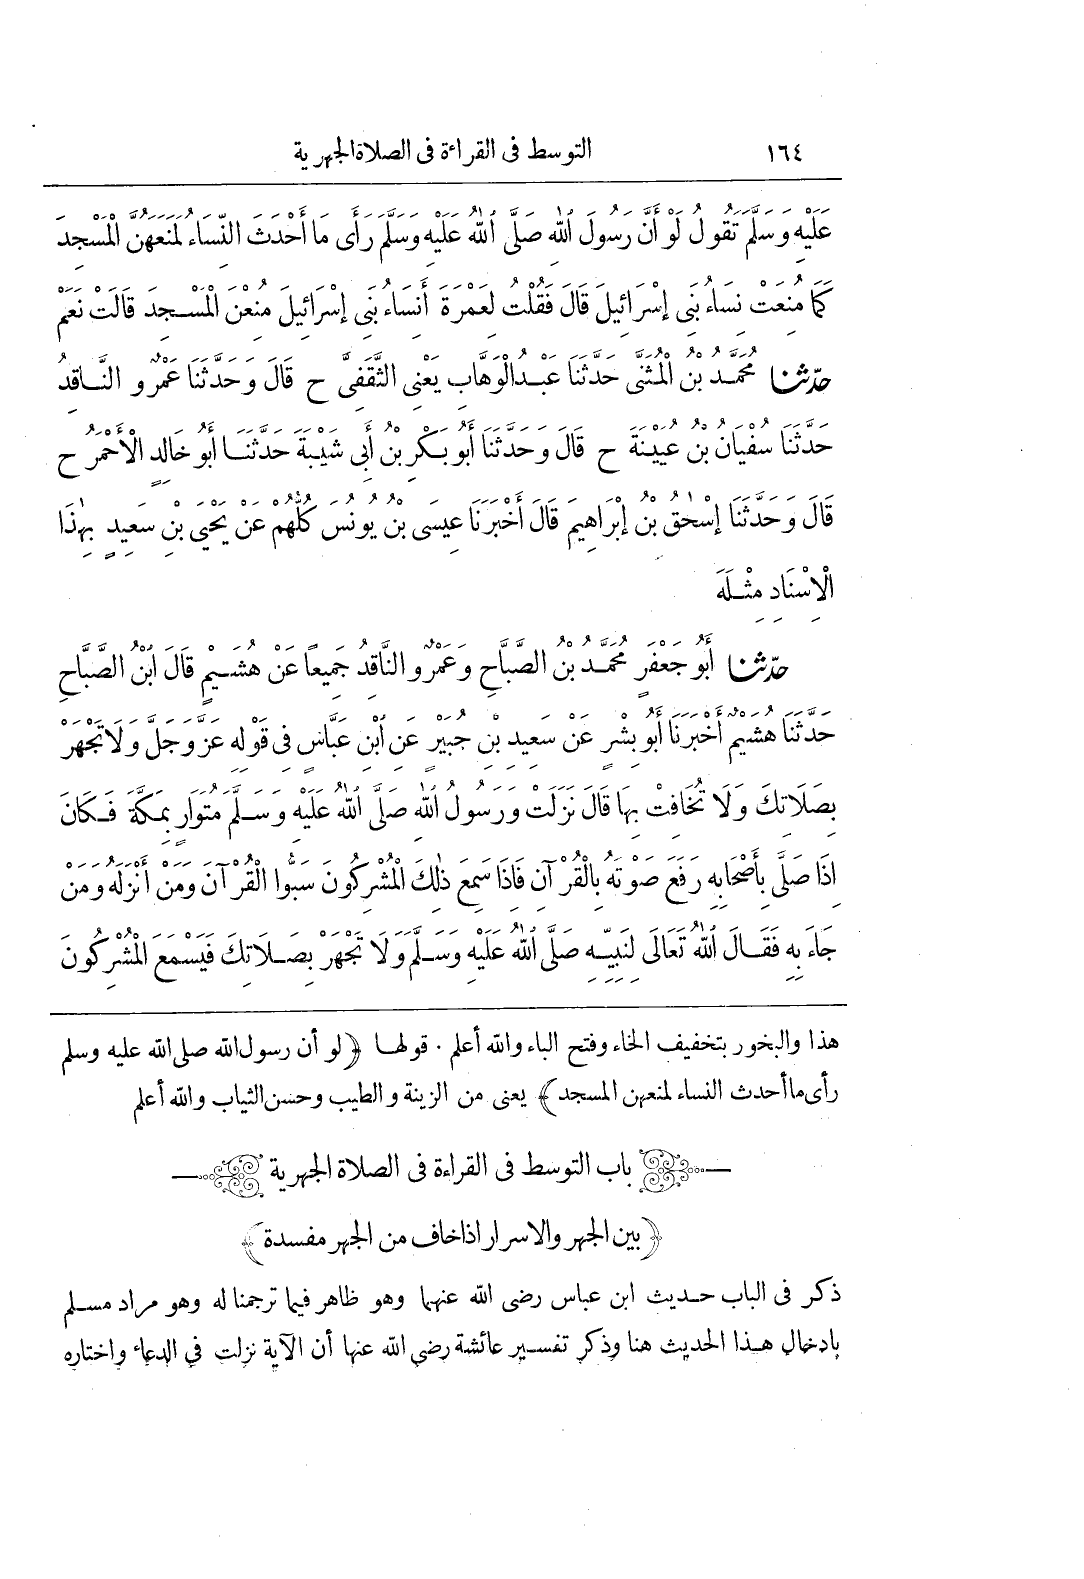 ١٦٤ التوسط فى القراءة فى الصلاة الجهرية
عَلَيْهِ وَسَلَّمَ تَقُولُ لَوْ أَنَّ رَسُولَ اللهِ صَلَّى اللهُ عَلَيْهِ وَسَلَّمَ رَأَى مَا أَحْدَثَ النِّسَاءُ لَمَنَعَهُنَّ الْمَسْجِدَ
كَمَا مُنِعَتْ نِسَاءُ بَنِى إِسْرَائِيلَ قَالَ فَقُلْتُ لِعَمْرَةَ أَنِسَاءُ بَنِى إِسْرَائِيلَ مُنِعْنَ الْمَسْجِدَ قَالَتْ نَعَمْ
حدّثنا مُحَمَّدُ بْنُ الْمُثَنَّى حَدَّثَنَا عَبْدُ الْوَهَّابِ يَعْنِى الثَّقَفِىَّ ح قَالَ وَحَدَّثَنَا عَمْرٌو النَّاقِدُ
حَدَّثَنَا سُفْيَانُ بْنُ عُيَيْنَةَ ح قَالَ وَحَدَّثَنَا أَبُو بَكْرِ بْنُ أَبِى شَيْبَةَ حَدَّثَنَا أَبُو خَالِدٍ الْأَحْمَرُ ح
قَالَ وَحَدَّثَنَا إِسْحٰقُ بْنُ إِبْرَاهِيمَ قَالَ أَخْبَرَنَا عِيسَى بْنُ يُونُسَ كُلُّهُمْ عَنْ يَحْيَى بْنِ سَعِيدٍ بِهٰذَا
الْإِسْنَادِ مِثْلَهُ
حدّثنا أَبُو جَعْفَرٍ مُحَمَّدُ بْنُ الصَّبَّاحِ وَعَمْرٌو النَّاقِدُ جَمِيعًا عَنْ هُشَيْمٍ قَالَ ابْنُ الصَّبَّاحِ
حَدَّثَنَا هُشَيْمٌ أَخْبَرَنَا أَبُو بِشْرٍ عَنْ سَعِيدِ بْنِ جُبَيْرٍ عَنِ ابْنِ عَبَّاسٍ فِى قَوْلِهِ عَزَّ وَجَلَّ وَلَا تَجْهَرْ
بِصَلَاتِكَ وَلَا تُخَافِتْ بِهَا قَالَ نَزَلَتْ وَرَسُولُ اللهِ صَلَّى اللهُ عَلَيْهِ وَسَلَّمَ مُتَوَارٍ بِمَكَّةَ فَكَانَ
إِذَا صَلَّى بِأَصْحَابِهِ رَفَعَ صَوْتَهُ بِالْقُرْآنِ فَاذَا سَمِعَ ذٰلِكَ الْمُشْرِكُونَ سَبُّوا الْقُرْآنَ وَمَنْ أَنْزَلَهُ وَمَنْ
جَاءَ بِهِ فَقَالَ اللهُ تَعَالَى لِنَبِيِّهِ صَلَّى اللهُ عَلَيْهِ وَسَلَّمَ وَلَا تَجْهَرْ بِصَلَاتِكَ فَيَسْمَعَ الْمُشْرِكُونَ
هذا والبخور بتخفيف الخاء وفتح الباء والله أعلم . قولها ﴿لو أن رسول الله صلى الله عليه وسلم
رأى ما أحدث النساء لمنعهن المسجد﴾ يعنى من الزينة والطيب وحسن الثياب والله أعلم
باب التوسط فى القراءة فى الصلاة الجهرية
﴿بين الجهر والاسرار اذا خاف من الجهر مفسدة﴾
ذكر فى الباب حديث ابن عباس رضى الله عنهما وهو ظاهر فيما ترجمنا له وهو مراد مسلم
بادخال هذا الحديث هنا وذكر تفسير عائشة رضى الله عنها أن الآية نزلت في الدعاء واختاره